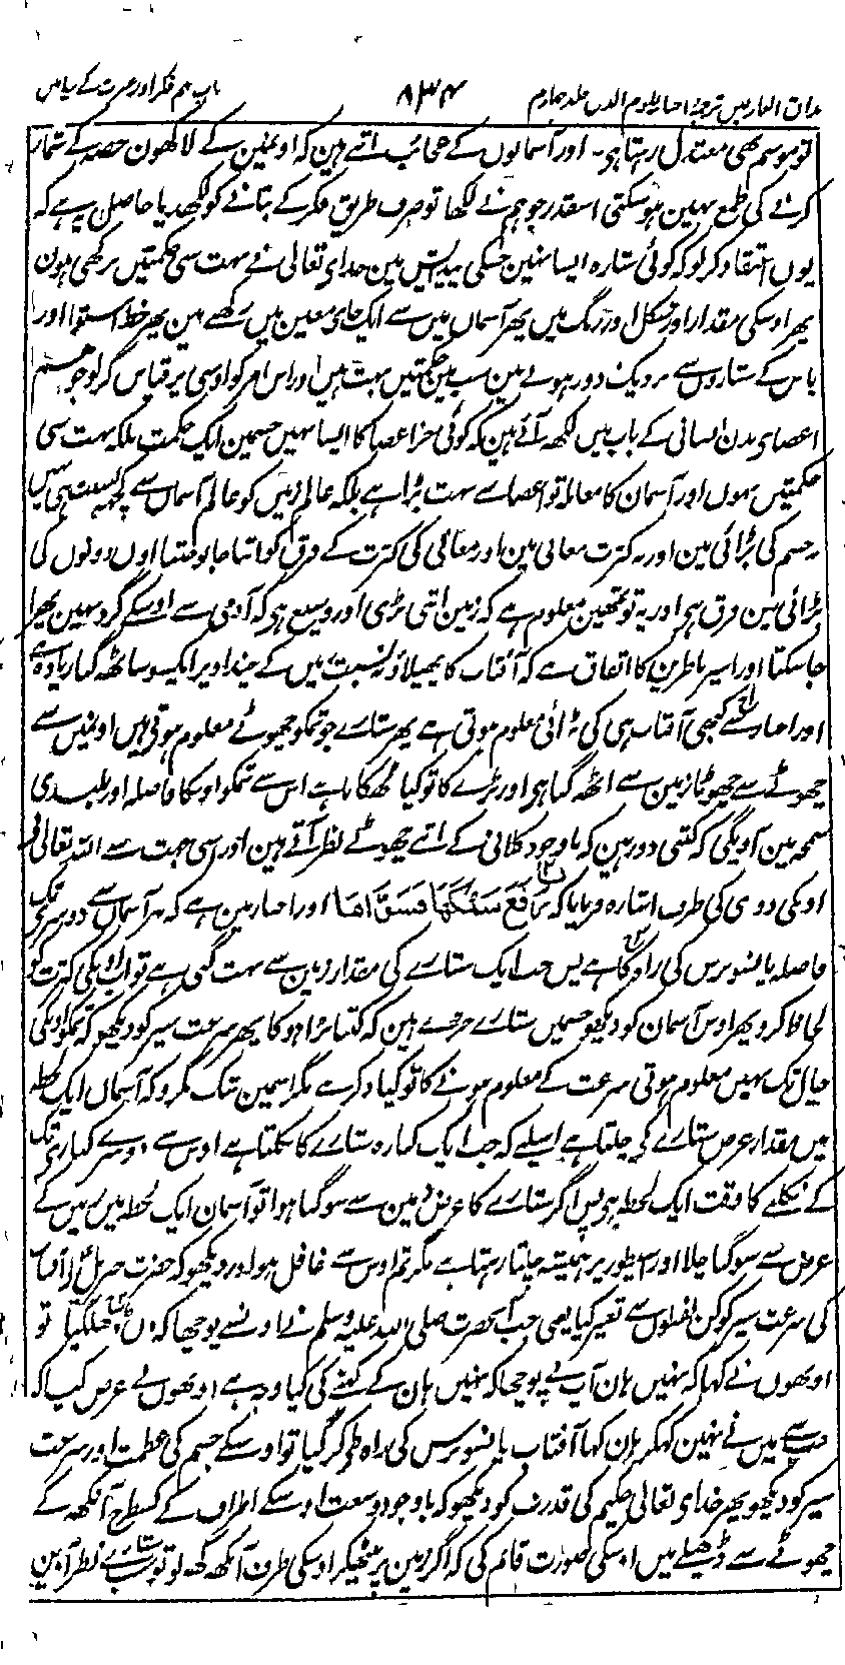 مذاق العارفین ترجمہ احیاء علوم الدین جلد چہارم ۸۳۴ باب نہم فکر اور عبرت کے بیان میں
تو موسم بھی معتدل رہتا ہی۔ اور آسمانوں کے عجائب اتنے ہین کہ اونمین کے لاکھون حصہ کے شمار
کرنے کی طمع نہین ہو سکتی اسقدر جو ہم نے لکھا تو صرف طریق فکر کے بتانے کو لکھدیا حاصل یہ ہے کہ
یوں اعتقاد کر لو کہ کوئی ستارہ ایسا نہین جسکی پیدایش مین خدای تعالی نے بہت سی حکمتیں نہ رکھی ہون
پھر اوسکی مقدار اور شکل اور رنگ میں پھر آسمان میں سے ایک جای معین میں رکھنے مین پھر خط استوا اور
پاس کے ستاروں سے نزدیک دور ہونے مین سب مین حکمتیں بہت ہیں اور اس امر کو اوسی پر قیاس کر لو جو ہم
اعضای بدن انسانی کے باب میں لکھ آئے ہین کہ کوئی جز اعضا کا ایسا نہیں جسمین ایک حکمت بلکہ بہت سی
حکمتیں نہوں اور آسمان کا معاملہ تو اعضا سے بہت بڑا ہے بلکہ عالم زمین کو عالم آسمان سے کچھ نسبت ہی نہیں
نہ جسم کی بڑائی مین اور نہ کثرت معانی مین اور معانی کی کثرت کے فرق کو اتنا جانو جتنا اون دونوں کی
بڑائی مین فرق ہی اور یہ تو تمھین معلوم ہے کہ زمین اتنی بڑی اور وسیع ہی کہ آدمی سے اوسکے گرد نہین پھرا
جا سکتا اور اسپر ناظرین کا اتفاق ہے کہ آفتاب کا پھیلاؤ بہ نسبت زمین کے چند اوپر ایکسو ساٹھ گنا زیادہ ہے
اور اخبار سے کبھی آفتاب ہی کی بڑائی معلوم ہوتی ہے پھر ستارے جو تمکو چھوٹے معلوم ہوتی ہیں اونمیں سے
چھوٹے سے چھوٹا زمین سے اٹھ گنا ہی اور بڑے کا تو کیا ٹھکانا ہے اس سے تمکو اوسکا فاصلہ اور بلندی
سمجھ مین آویگی کہ کتنی دور ہین کہ باوجود کلانی کے اتنے چھوٹے نظر آتے ہین اور اسی جہت سے اللہ تعالی نے
اونکی دوری کی طرف اشارہ فرمایا کہ رَفَعَ سَمْكَهَا فَسَوَّاهَا اور اخبار مین ہے کہ ہر آسمان سے دوسری تک
فاصلہ پانسو برس کی راہ کا ہے پس جب ایک ستارے کی مقدار زمین سے بہت گنی ہے تو اب اونکی کثرت کو
لحاظ کرو پھر اوس آسمان کو دیکھو جسمیں ستارے جڑے ہین کہ کتنا بڑا ہو گا پھر سرعت سیر کو دیکھو کہ تمکو اوسکی
چال تک نہیں معلوم ہوتی سرعت کے معلوم ہونے کا تو کیا ذکر ہے مگر اسمین شک نکرو کہ آسمان ایک لحظہ
میں مقدار عرض ستارے کے چلتا ہے اسلیے کہ جب ایک کنارہ ستارے کا نکلتا ہے اوس سے دوسرے کناری تک
کے نکلنے کا وقت ایک لحظہ ہی پس اگر ستارے کا عرض زمین سے سو گنا ہوا تو آسمان ایک لحظہ میں زمین کے
عرض سے سو گنا چلا اور اسیطور پر ہمیشہ چلتا رہتا ہے مگر تم اوس سے غافل ہو اور دیکھو کہ حضرت جبرئیل نے آفتاب
کی سرعت سیر کو کن لفظوں سے تعبیر کیا یعنی جب آنحضرت صلی اللہ علیہ وسلم نے اونسے پوچھا کہ آفتاب ڈھلگیا تو
اونھوں نے کہا کہ نہیں ہان آپ نے پوچھا کہ نہیں ہان کے کہنے کی کیا وجہ ہے اونھوں نے عرض کیا کہ
جب سے میں نے نہین کہکر ہان کہا آفتاب پانسو برس کی راہ طی کر گیا تو اوسکے جسم کی عظمت اور سرعت
سیر کو دیکھو پھر خدای تعالی حکیم کی قدرت کو دیکھو کہ باوجود وسعت اوسکے اطراف کے کسطرح آنکھ کے
چھوٹے سے ڈھیلے میں اوسکی صورت قائم کی کہ اگر زمین پر بیٹھکر اوسکی طرف آنکھ کھولو تو سب ستارے نظر آوین